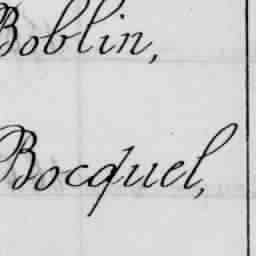 Boblin,
Bocquel,